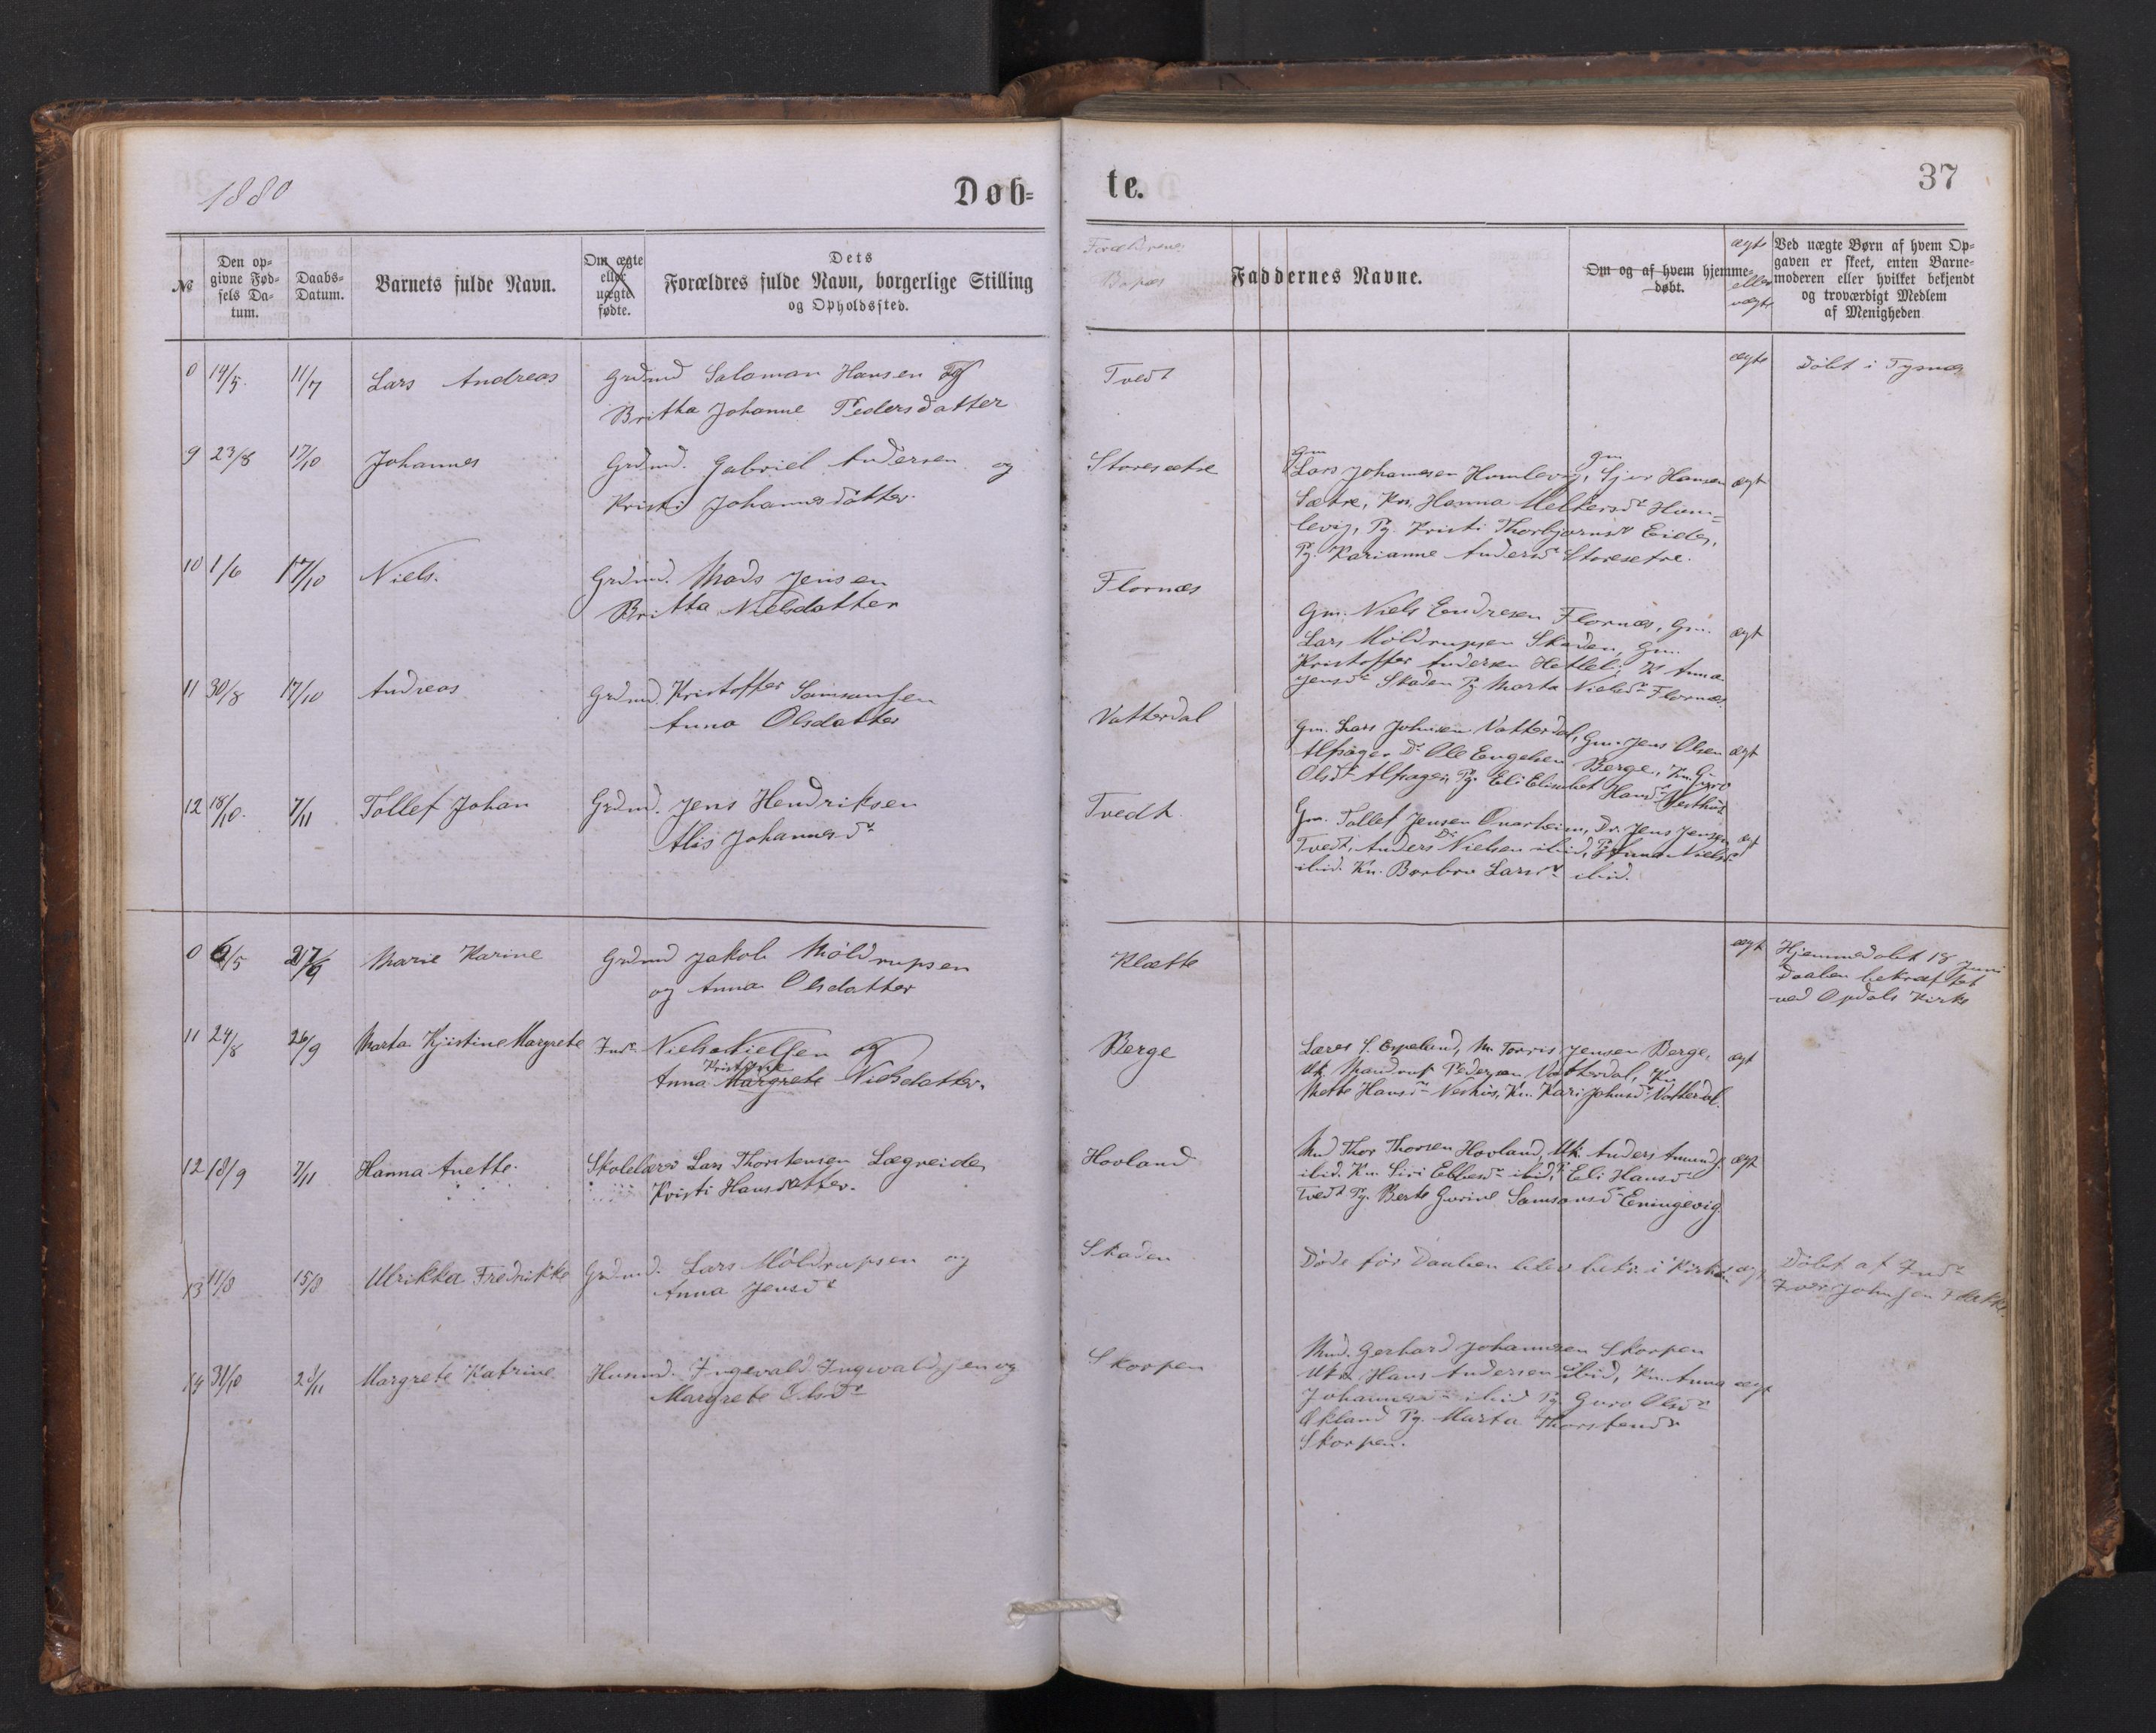 1880
Døb=
te.
37
№
Den op=
givne Fød=
sels Da=
tum.
Daabs=
Datum.
Barnets fulde Navn.
Om ægte
eller
uægte
fødte.
Dets
Forældres fulde Navn, borgerlige Stilling
og Opholdssted.
Forældrenes
Bopæl
Faddernes Navne.
Om og af hvem hjemme=
døbt.
ægte
eller
uægte
Ved uægte Børn af hvem Op=
gaven er skeet, enten Barne=
moderen eller hvilket bekjendt
og troværdigt Medlem
af Menigheden
0 14/5. 11/7 Lars Andreas Grdmd Salaman Hansen og
Britta Johanne Pedersdatter
Tvedt
ægte
Døbt i Tysnæs
9 23/8 17/10 Johannes Grdmd. Gabriel Andersen og
Kristi Johannesdatter.
Storesætre
Gm gm
Lars Johannesen Humlevig, Sjur Hansen ægt
Sætre, Kn. Hanna Melkersdr Hum=
levig, Pg. Kristi Thorbjørnsdr Eide,
Pg. Karianne Andersdr Storesetre.
10 1/6 17/10 Niels. Grdmd. Mads Jensen
Britta Nielsdatter
Flornæs
Gm. Niels Endresen Flornæs, Gm. ægt
Lars Möldrupsen Skaden, Gm.
Kristoffer Andersen Hetlel. K Anna
Jensdr Skaden Pg Marta Nielsdr Flornæs
11 30/8 17/10 Andreas Grdmd Kristoffer Samsonsen
Anna Olsdatter
Vatterdal
Gm. Lars Johnsen Vatterdal, Gm. Jens Olsen ægt
Alsager Dr. Ole Engelsen Berge, Kn. Guro
Olsdr Alsager, Pg. Eli Elisabet Hansdr Vesthus
12 18/10. 7/11 Tollef Johan Grdmd. Jens Hendriksen
Alis Johannesdr
Tvedt
Gm. Tollef Jensen Onarheim, Dr. Jens Jensen ægt
Tvedt, Anders Nielsen ibid, Pg Anna Nielsdr
ibid. Kn. Barbro Larsdr ibid.
0 6/5 27/6 Marie Karine Grdmd Jakob Möldrupsen
og Anna Olsdatter
Klætte
ægt
Hjemmedøbt 18 Juni
Daaben bekræftet
ved Opdals Kirke
11 24/8 26/9 Marta Kjistine Margrete Indr Niels Nielsen og
Kristine
Anna Margrete Nielsdatter.
Berge
Lærer S. Espeland, M. Torris Jensen Berge, ægt
Uk. Mandrup Pedersen Vatterdal, Kn
Mette Hansdr Neshus, Kn. Kari Johnsdr Vatterdal.
12 18/9 7/11 Hanna Anette. Skolelærer Lars Thorstensen Lægreide,
Kristi Hansdatter.
Hovland
Md Thor Thorsen Hovland, Uk. Anders Amunds. ægt
ibid. Kn. Siri Ebbesdr ibid, Eli Hansdr
Tvedt Pg. Berte Gurine Samsonsdr Eningevig.
13 11/8 15/8 Ulrikka Fredrikke Grdmd. Lars Möldrupsen og
Anna Jensdr
Skaden
Døde før Daaben blev bekr. i Kirken ægt
Døbt af Indr
Iver Johnsen Flakke
14 31/10 21/11 Margrete Katrine Husmd. Ingevald Ingevaldsen og
Margrete Olsdr
Skorpen
Md. Gerhard Johannesen Skorpen
Uk. Hans Andersen ibid, Kn. Anna ægt
Johannesdr ibid Pg Guro Olsdr
Økland Pg. Marta Thorstensdr
Skorpen.